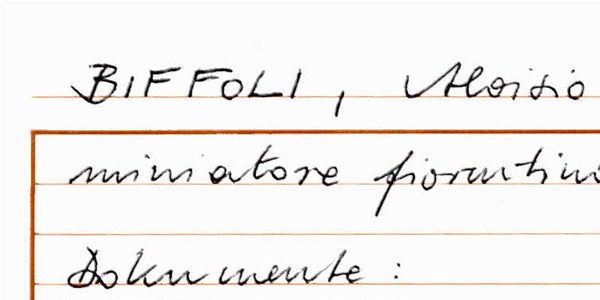 BIFFOLI, Aloisio
miniatore fiorentino
Dokumente: